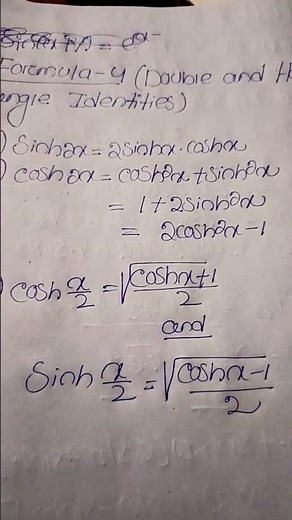 Formula-4 (Double and
angle Identities)
sinh2x = 2sinhx·coshx
cosh2x = cosh²x + sinh²x
= 1 + 2sinh²x
= 2cosh²x - 1
cosh x/2 = √(coshx+1)/2
and
sinh x/2 = √(coshx-1)/2